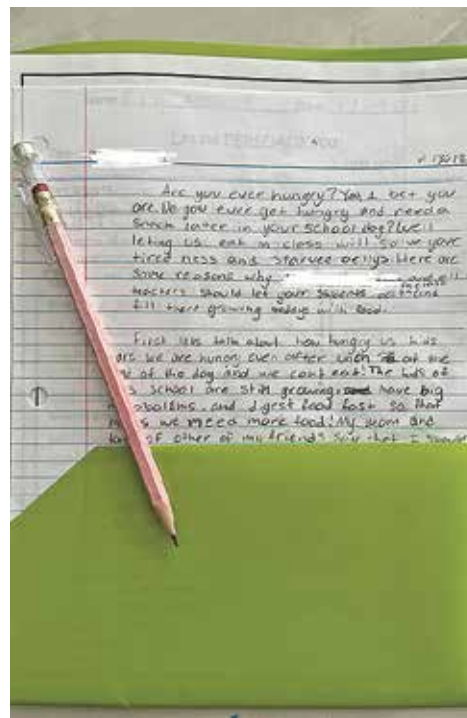 Are you ever hungry? Yes I bet you
are. Do you ever get hungry and need a
snack later in your school day? Well
leting us eat in class will solve your
tired ness and starvee bellys. Here are
some reasons why and all
teachers should let your students eat and
fill there growing bodeys with food.
First lets talk about how hungry us kids
are we are hungry even after lunch at the
of the day and we cant eat! The kids of
school are still growing have big
and digest food fast so that
we need more food! My mom and
of other of my friends say that I